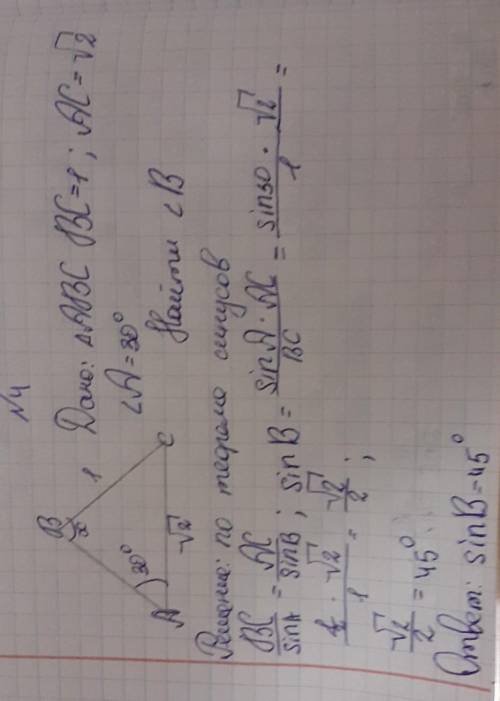 №4
Дано: △ABC BC=1; AC=√2
∠A=30°
Найти ∠B
B
x
1
30°
A
√2
C
Решение: по теореме синусов
BC/sinA = AC/sinB; sinB = sinA·AC/BC = sin30·√2/1 =
½·√2/1 = √2/2;
√2/2 = 45°
Ответ: sinB=45°